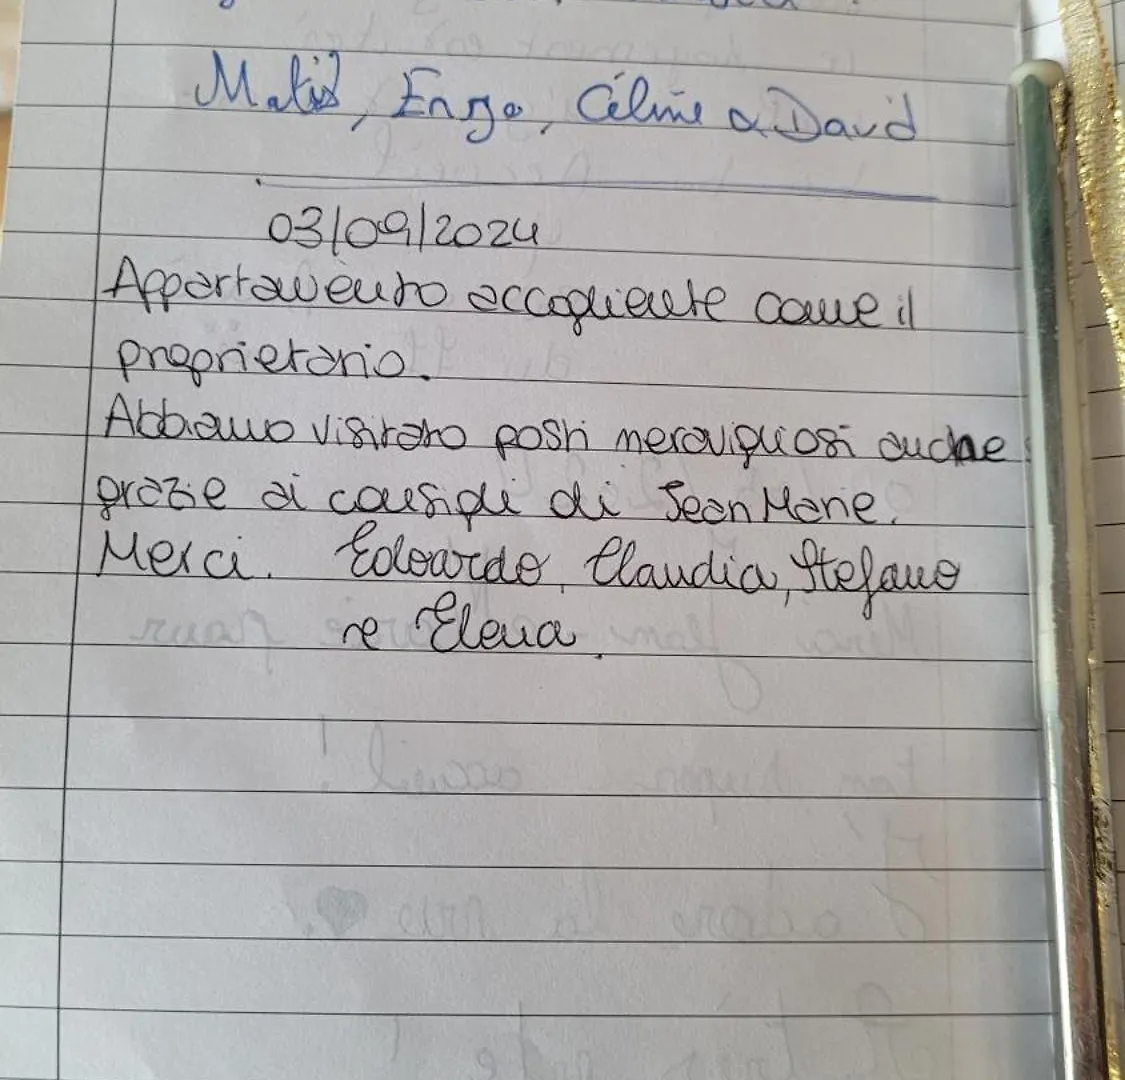 Matis, Enzo, Céline & David
03/09/2024
Appartamento accogliente come il
proprietario.
Abbiamo visitato posti meravigliosi anche
grazie ai consigli di Jean Marie.
Merci. Edoardo, Claudia, Stefano
e Elena.